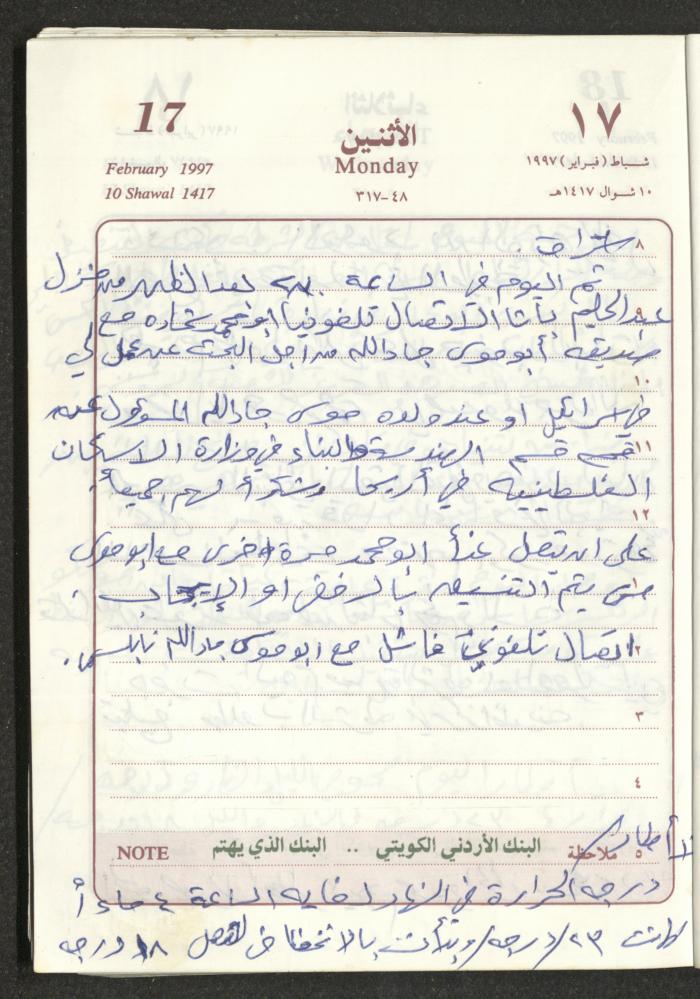 17
١٧
الأثنين
February 1997
Monday
شباط (فبراير) ١٩٩٧
10 Shawal 1417
٤٨-٣١٧
١٠ شوال ١٤١٧هـ
٨
تم اليوم في الساعة بعد الظهر من منزل
٩
عبد الحليم باشا الاتصال تلفونيا ابو محمد شحاده مع
صديقه أبو موسى جادالله من اجل البحث عن عمل لي
١٠
في اسرائيل او عند ولده موسى جادالله المسؤول عن
١١
قسم الهندسة والبناء في وزارة الاسكان
الفلسطينية في أريحا وشكراً لهم جميعاً.
١٢
على ان نتصل غداً ابو محمد مرة اخرى مع ابو موسى
حتى يتم التنسيق بالرفض او الإيجاب.
٢
اتصال تلفوني فاشل مع ابو موسى جادالله نابلسي.
٣
٤
لا أمطار
NOTE
البنك الأردني الكويتي .. البنك الذي يهتم
ملاحظة ٥
درجه الحرارة في النهار لغايه الساعة ٤ مساءاً
كانت ٢٣ /درجه/ وبدأت بالانخفاض لتصل ١٨ درجه